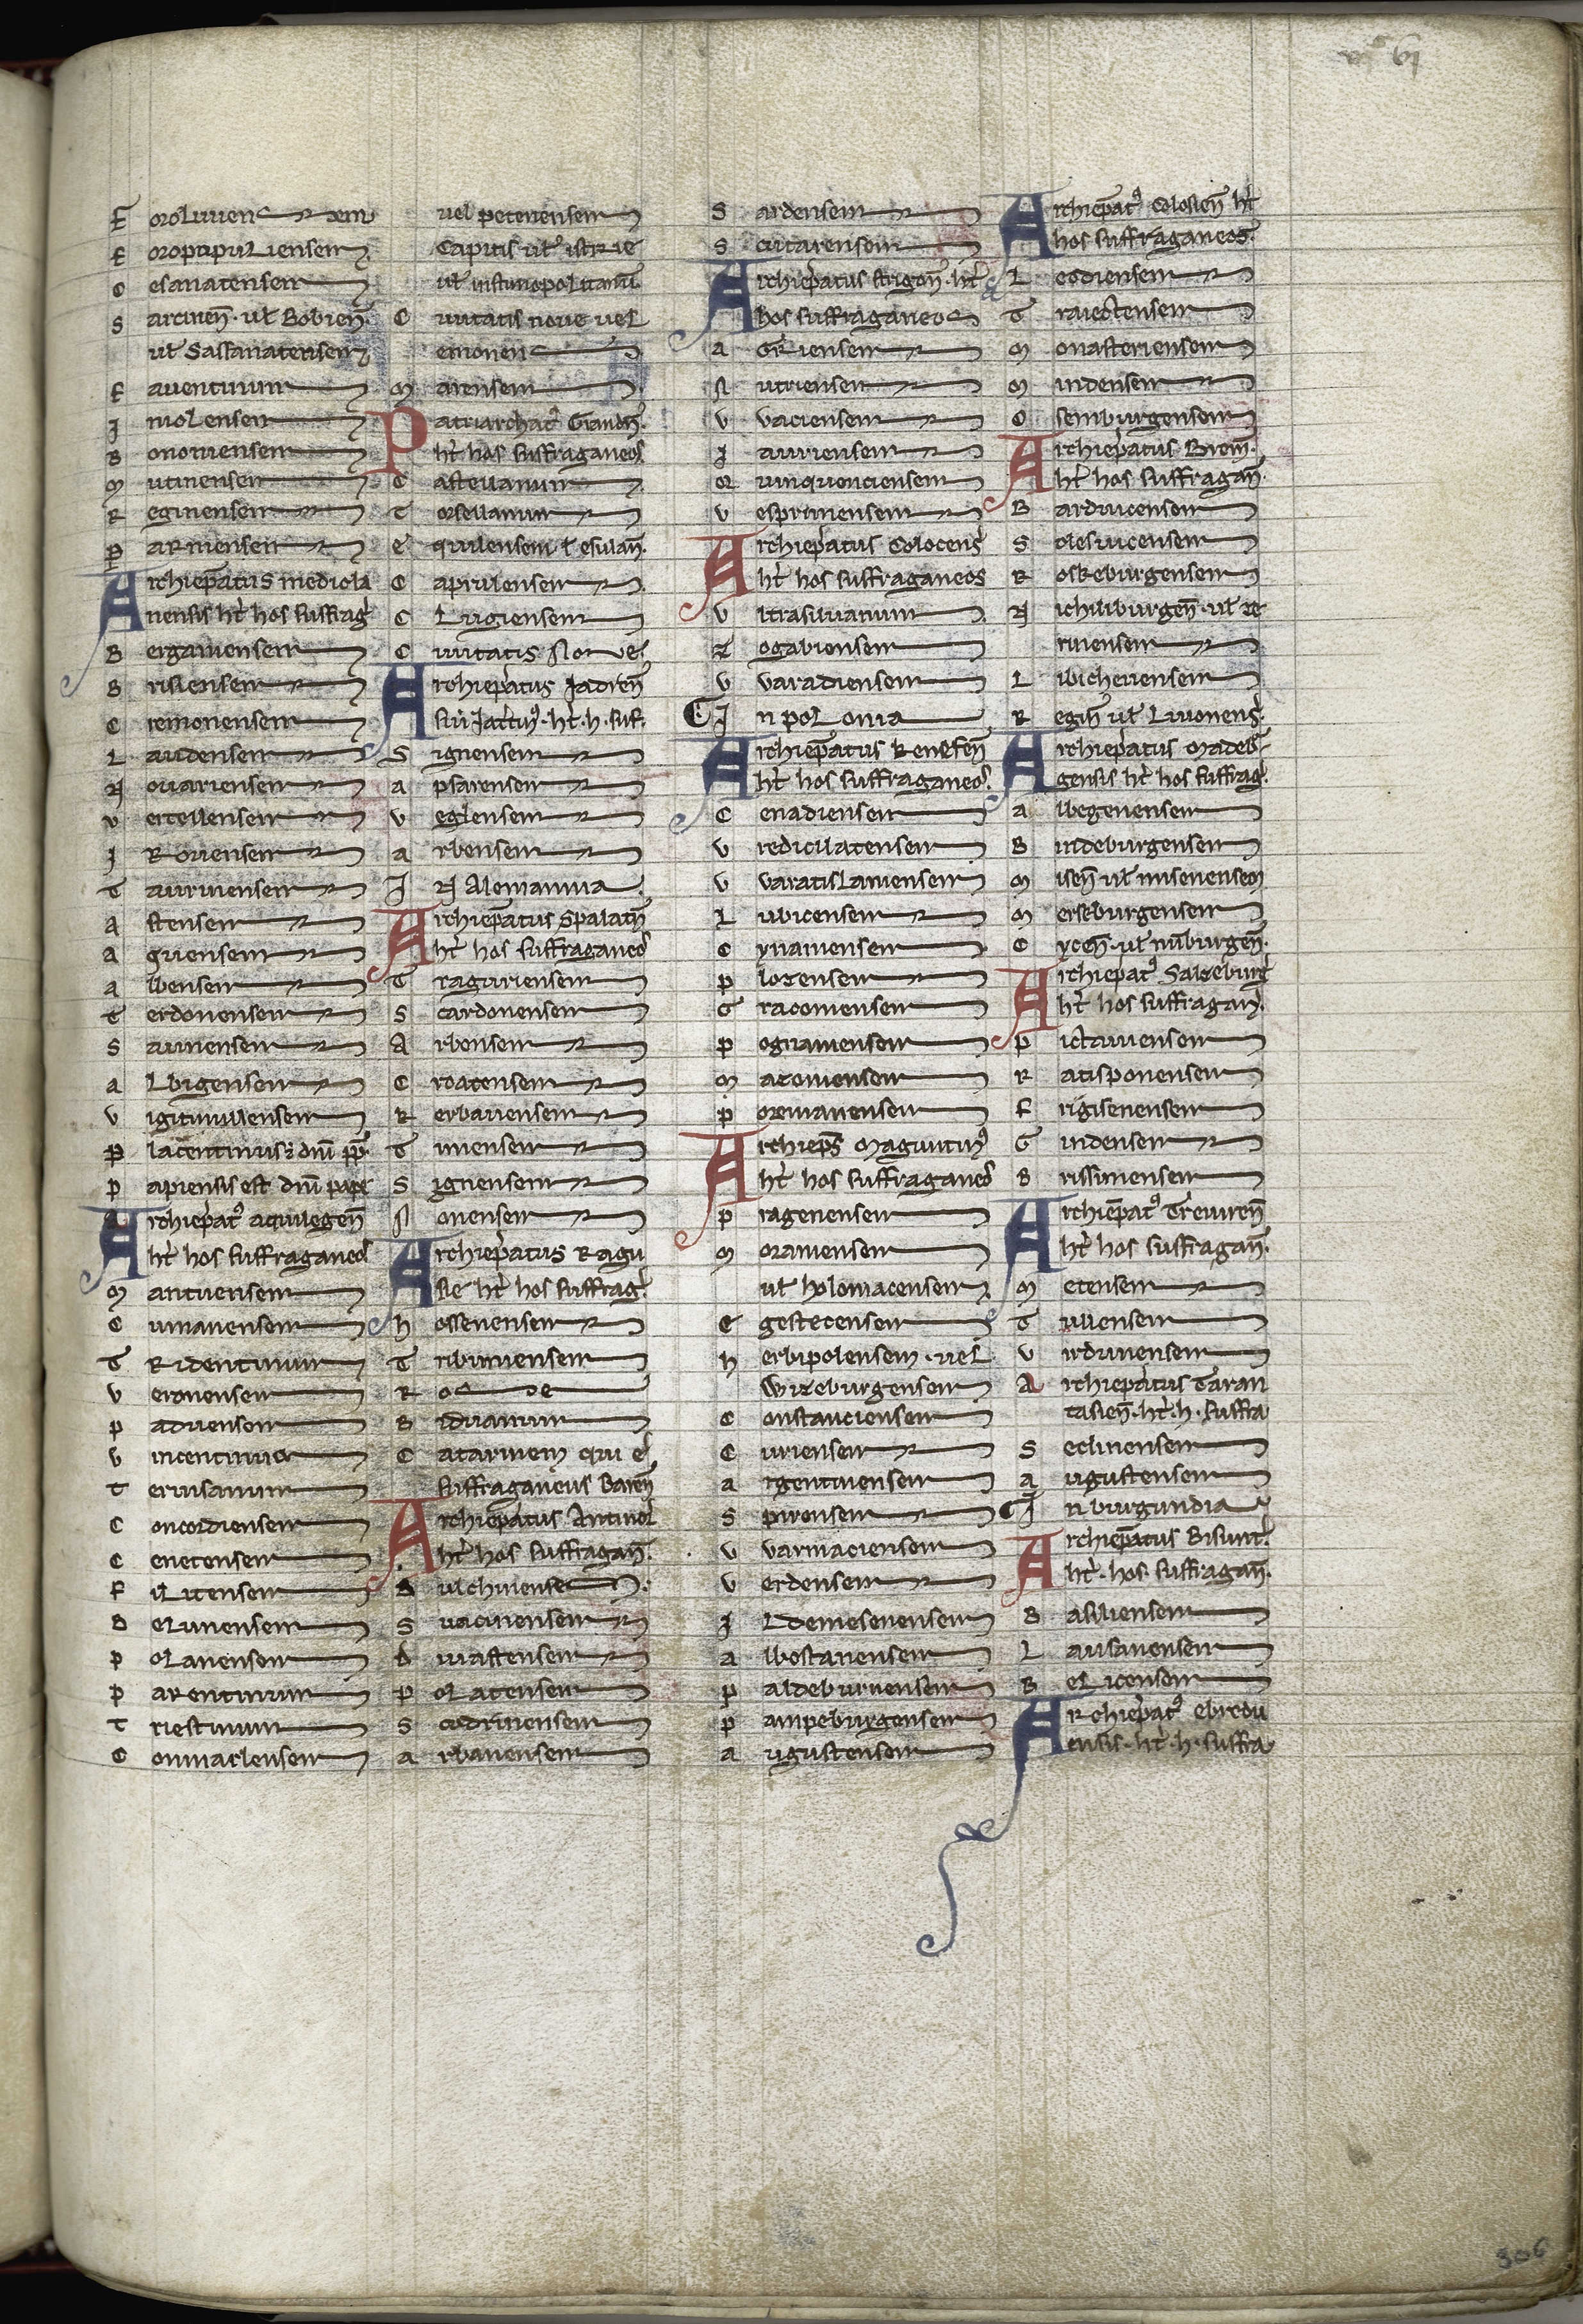 61
Foroliuiensem
Foropopuliensem
Cesanatensem
Sarcineñ. ul̃ Bobieñ.
ul̃ Sassanatensem
Fauentinum
Imolensem
Bononiensem
Mutinensem
Reginensem
Parmensem
Archiep̃atus mediola
nensis ht̃ hos suffrag̃
Bergamensem
Brisiensem
Cremonensem
Laudensem
Nouariensem
Vercellensem
I R oriensem
Taurinensem
Astensem
Aquensem
Albensem
Terdonensem
Sauinensem
Albigensem
Vigintimiliensem
Placentinus: dñi pp̃.
Papiensis est dñi pape
Archiep̃at9 aquilegeñ
ht̃ hos suffraganeos
Mantuensem
Cumanensem
Tridentinum
Veronensem
Paduensem
Vincentinum
Teruisanum
Concordiensem
Cenetensem
Filitensem
Belunensem
Polanensem
Parentinum
Triestinum
Commaclensem
uel petenensem
Capitis ul̃ istrie
ul̃ iustinopolitanũ.
Ciuitatis noue uel
emonen
Marensem
Patriarchat9 Grandeñ.
ht̃ hos suffraganeos
Castellanum
Torsellanum
Equilensem l̃ esulañ.
Caprulensem
Clugiensem
Ciuitatis Noue
Archiep̃atus Jadreñ
ht̃. h. suf.
Signensem
Apsarensem
Veglensem
Arbensem
IN Alemannia
Archiep̃atus Spalateñ
ht̃ hos suffraganeos
Traguriensem
Scardonensem
Arbensem
Croatensem
Rerbauensem
Tininensem
Signensem
Nonensem
Archiep̃atus Ragu
sie ht̃ hos suffrag̃.
hossenensem
Tribuniensem
Rose
Biduanum
Catarinem qui ẽ
suffraganeus Bareñ
Archiep̃atus Antiuoř
ht̃ hos suffragañ.
Dulchinense
Suacinensem
driuastensem
Polatensem
Scodrinensem
Arbanensem
Sardensem
Scutarensem
Archiep̃atus strigoñ. ht̃
hos suffraganeos
Agriensem
Nutriensem
Vuaciensem
Iauriensem
Quinquenciensem
Vesprimensem
Archiep̃atus Colocens̃
ht̃ hos suffraganeos
Vltrasiluanum
Zogabiensem
Vvaradiensem
In polonia
Archiep̃atus kenesen̄
ht̃ hos suffraganeos.
Cenadiensem
Vredicilatensem
Vvaratislaniensem
Lubicensem
Cynamensem
Plozensem
Gracomensem
Pognamensem
Macomensem
Poremanensem
Archiep̃s Maguntin9
ht̃ hos suffraganeos
Pragenensem
Morauensem
ul̃ holomacensem
Egestecensem
herbipolensem. uel
Wizeburgensem
Constanciensem
Curiensem
Argentinensem
Spirensem
Vvarmaciensem
Verdensem
Ildemesenensem
Albostanensem
Paldeburnensem
Pampeburgensem
Augustensem
Archiep̃at9 Coloseñ ht̃
hos suffraganeos.
Leodiensem
Traiectensem
Monasteriensem
Mindensem
Osemburgensem
Archiep̃atus Brem̃.
ht̃ hos suffragañ.
Barduicensem
Solesuicensem
Roskeburgensem
Nichiliburgeñ. ul̃ ze
rinensem
Libichenensem
Regiñ ul̃ Liuonens̃.
Archiep̃atus Madeb̃
gensis ht̃ hos suffrag̃.
Albegenensem
Bindeburgensem
Miseñ ul̃ misenensem
Merseburgensem
Cyceñ. ul̃ nuburgeñ.
Archiep̃at9 Salzeburg̃
ht̃ hos suffragañ.
Pictauiensem
Ratisponensem
Frigisenensem
Gindensem
Brissinensem
Archiep̃at9 Treuureñ
ht̃ hos suffragañ.
Metensem
Tullensem
Virdunensem
Archiep̃atus Taran
tasieñ. ht̃. h. suffra
Seclinensem
Augustensem
In burgundia
Archiep̃atus Bisunt̃.
ht̃. hos. suffragañ.
Basiliensem
Lausanensem
Belicensem
Archiep̃at9 ebredu
ensis. ht̃. h. suffra
306